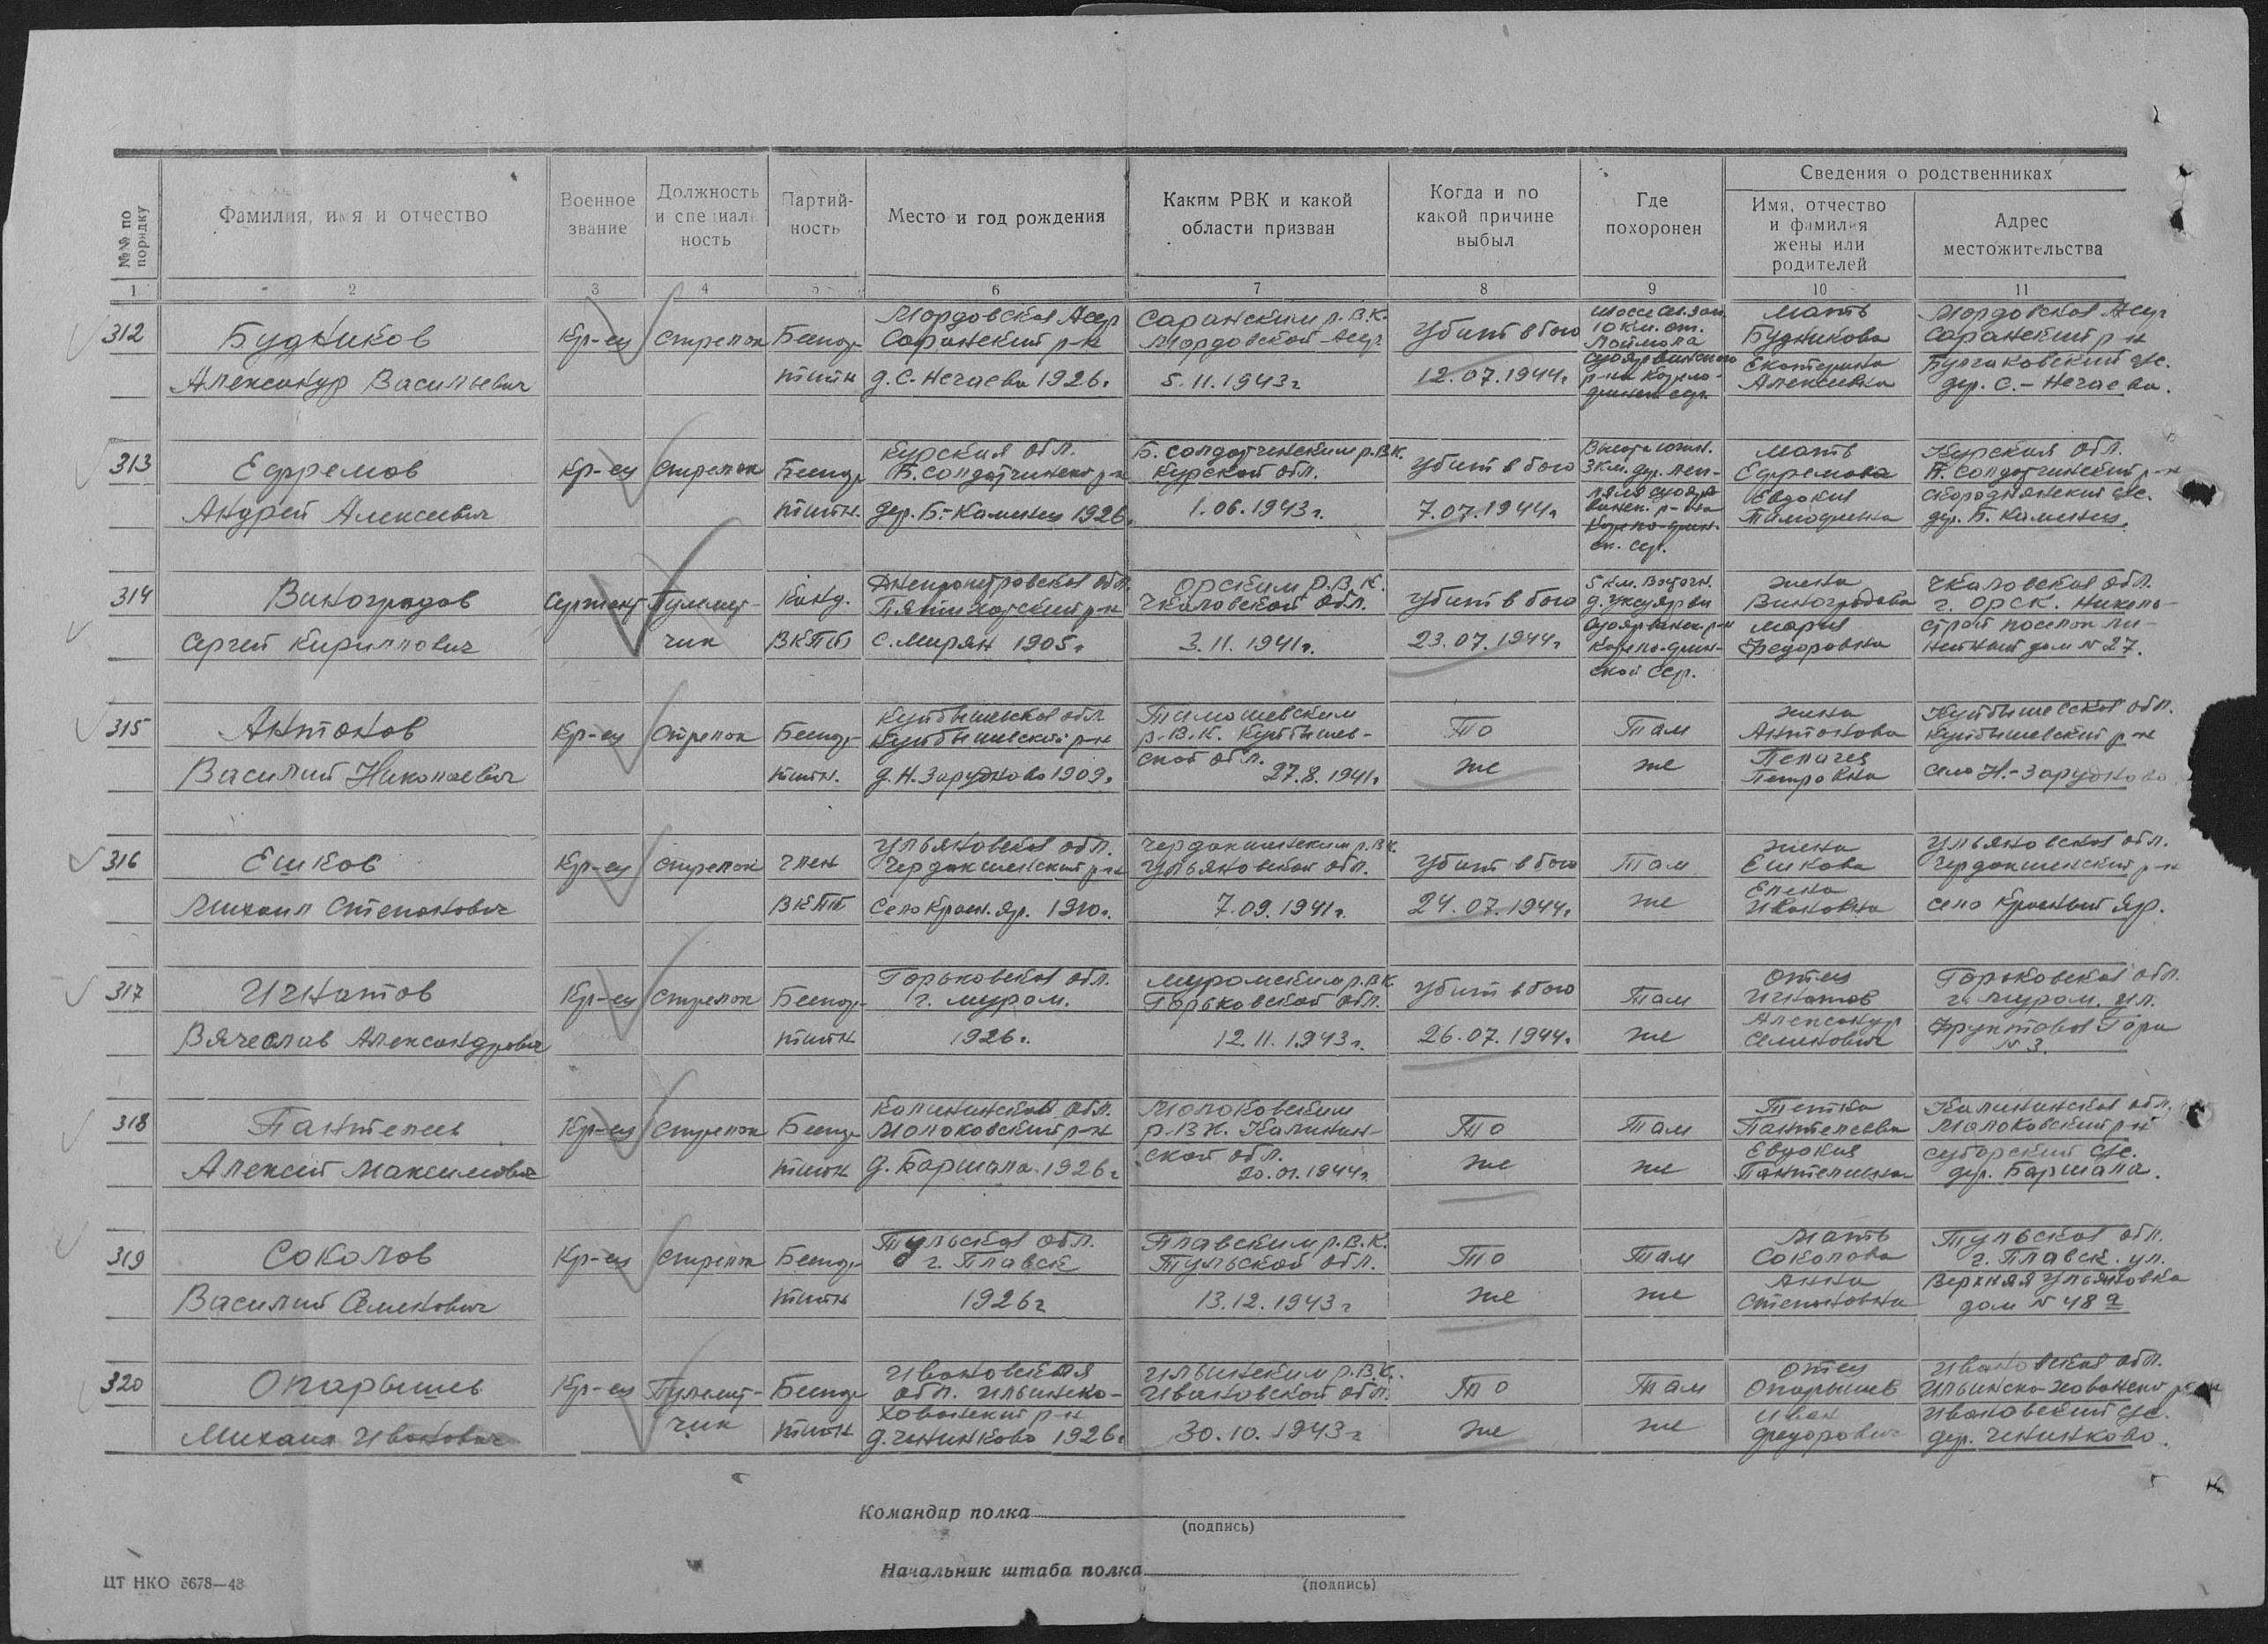 №№ по порядку
Фамилия, имя и отчество
Военное звание
Должность и специальность
Партийность
Место и год рождения
Каким РВК и какой области призван
Когда и по какой причине выбыл
Где похоронен
Сведения о родственниках
Имя, отчество и фамилия жены или родителей
Адрес местожительства
1 2 3 4 5 6 7 8 9 10 11
312
Будников
Александр Васильевич
Кр-ец
Стрелок
Беспартийн
Мордовская Асср
Саранский р-н
д. С. Нечаева 1926г.
Саранским р.В.К.
Мордовской Асср
5.11.1943г
Убит в бою
12.07.1944г.
10 км. от.
Лоймола
Суоярвинского
р-на Карело-
Мать
Будникова
Екатерина
Алексеевна
Мордовская Асср
Саранский р-н
дер. С.-Нечаева.
313
Ефремов
Андрей Алексеевич
Кр-ец
Стрелок
Беспартийн.
Курская обл.
Б. Солдатчинский р-н
дер. Б.-Каменец 1926г.
Б. Солдатчинским р.В.К.
Курской обл.
1.06.1943г.
Убит в бою
7.07.1944г
3 км. дер. Леп-
Карело-фин-
ск. сср.
Мать
Ефремова
Евдокия
Тимофеевна
Курская обл.
Б. Солдатчинский р-н
дер. Б. Каменец.
314
Виноградов
Сергей Кириллович
Сержант
Пулемет-
чик
Канд.
ВКПб
Днепропетровская обл.
Пятихатский р-н
с. Мирян 1905г
Орским р.В.К.
Чкаловской обл.
3.11.1941г.
Убит в бою
23.07.1944г
5 км. Восточн.
д. Уксуярви
Суоярвинск. р-н
Карело-фин-
ской сср.
жена
Виноградова
Мария
Федоровна
Чкаловская обл.
г. Орск. Никель-
строй поселок ли-
нейный дом № 27.
315
Антонов
Василий Николаевич
Кр-ец
Стрелок
Беспартийн.
Куйбышевская обл.
Куйбышевский р-н
Тимошевским
р.В.К. Куйбышев-
ской обл.
27.8.1941г
То
же
Там
же
жена
Антонова
Пелагея
Петровна
Куйбышевская обл.
Куйбышевский р-н
316
Ешков
Михаил Степанович
Кр-ец
Стрелок
член
ВКПб
Ульяновская обл.
Чердаклинский р-н
Село Красн. Яр. 1910г.
Чердаклинским р.В.К.
Ульяновской обл.
7.09.1941г.
Убит в бою
24.07.1944г
Там
же
жена
Ешкова
Елена
Ивановна
Ульяновская обл.
Чердаклинский р-н
село Красный Яр.
317
Игнатов
Вячеслав Александрович
Кр-ец
Стрелок
Беспартийн
Горьковская обл.
г. Муром.
1926г.
Муромским р.В.К.
Горьковской обл.
12.11.1943г.
Убит в бою
26.07.1944г.
Там
же
Отец
Игнатов
Александр
Семенович
Горьковская обл.
г. Муром. ул.
Фруктовая Гора
№ 3.
318
Пантелеев
Алексей Максимович
Кр-ец
Стрелок
Беспартийн
Калининская обл.
Молоковский р-н
д. Баршала 1926г
Молоковским
р.В.К. Калинин-
ской обл.
20.01.1944г.
То
же
Там
же
Тетка
Пантелеева
Евдокия
Калининская обл.
Молоковский р-н
дер. Баршала.
319
Соколов
Василий Семенович
Кр-ец
Стрелок
Беспартийн
Тульская обл.
г. Плавск
1926г
Плавским р.В.К.
Тульской обл.
13.12.1943г
То
же
Там
же
Мать
Соколова
Анна
Степановна
Тульская обл.
г. Плавск. ул.
Верхняя Ульяновка
дом № 48 а
320
Опарышев
Михаил Иванович
Кр-ец
Пулемет-
чик
Беспартийн
Ивановская
обл. Ильинско-
Хованский р-н
д. Ченинково 1926г
Ильинским р.В.К.
Ивановской обл.
30.10.1943г
То
же
Там
же
Отец
Опарышев
Иван
Федорович
Ивановская обл.
Ильинско-Хованский р-н
Ивановский с/с.
дер. Ченинково.
Командир полка
(подпись)
Начальник штаба полка
(подпись)
ЦТ НКО 5678—43